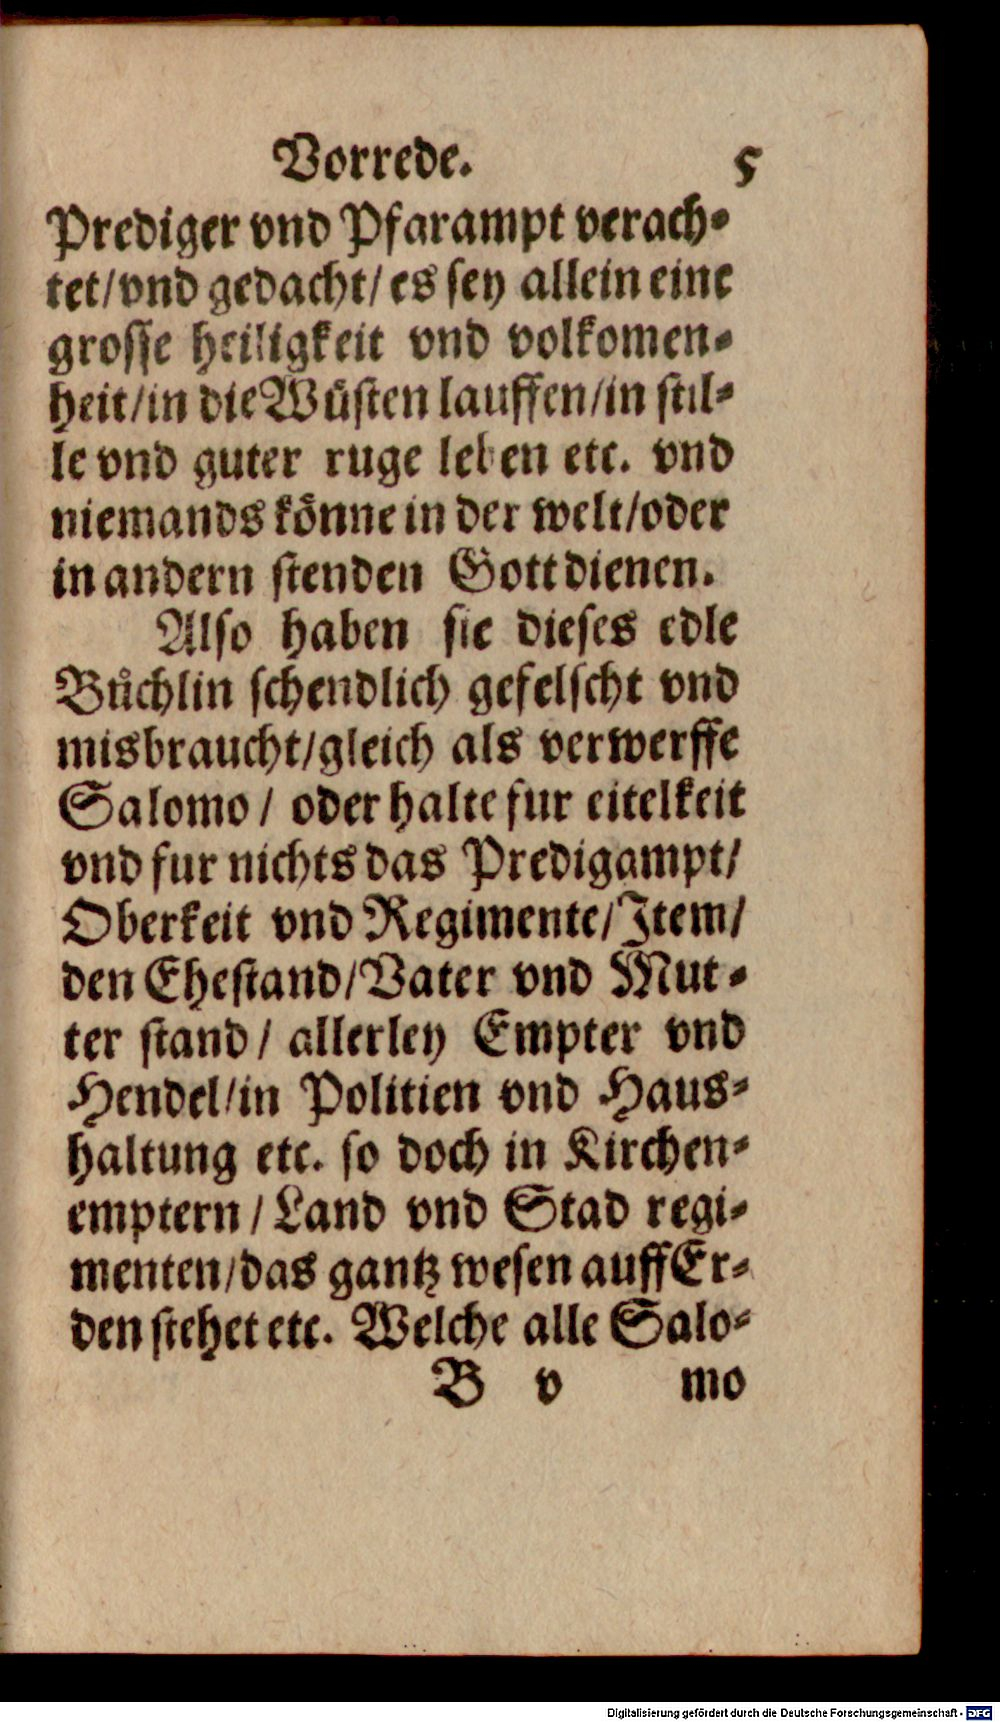 Vorrede. 5
Prediger vnd Pfarampt verach-
tet/vnd gedacht/es sey allein eine
grosse heiligkeit vnd volkomen-
heit/in die Wuͤsten lauffen/in stil-
le vnd guter ruge leben etc. vnd
niemands koͤnne in der welt/oder
in andern stenden Gott dienen.
Also haben sie dieses edle
Buͤchlin schendlich gefelscht vnd
misbraucht/gleich als verwerffe
Salomo/ oder halte fur eitelkeit
vnd fur nichts das Predigampt/
Oberkeit vnd Regimente/Item/
den Ehestand/Vater vnd Mut-
ter stand/ allerley Empter vnd
Hendel/in Politien vnd Haus-
haltung etc. so doch in Kirchen-
emptern/Land vnd Stad regi-
menten/das gantz wesen auff Er-
den stehet etc. Welche alle Salo-
B v mo
Digitalisierung gefördert durch die Deutsche Forschungsgemeinschaft - DFG